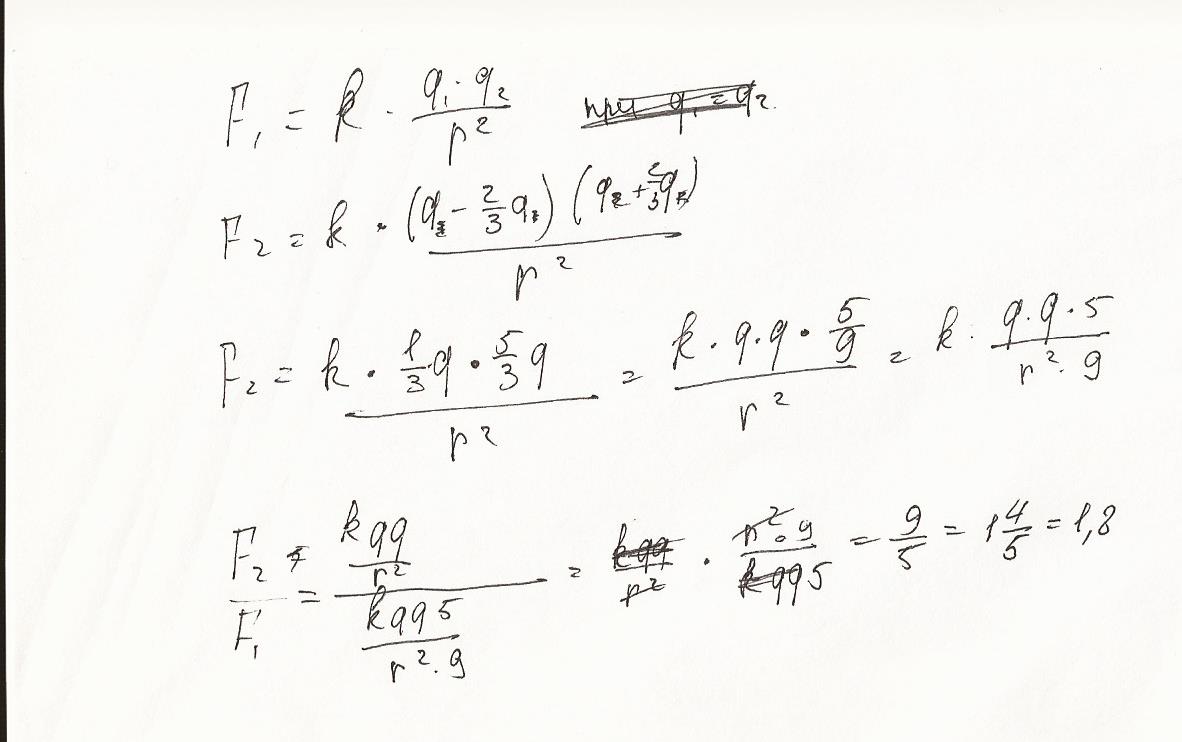 F₁ = k · (q₁ · q₂)/r² при q₁ = q₂.
F₂ = k · ((q₂ − 2/3 q₂)(q₂ + 2/3 q₂))/r²
F₂ = (k · 1/3 q · 5/3 q)/r² = (k · q · q · 5/9)/r² = k · (q · q · 5)/(r² · 9)
F₂/F₁ = (kqq/r²)/(kqq5/(r² · 9)) = kqq/r² · (r² · 9)/(kqq5) = 9/5 = 1 4/5 = 1,8